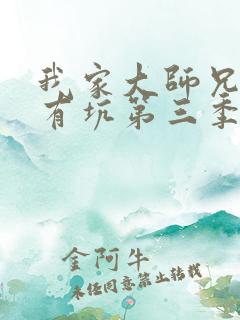 我家大师兄
有坑第三季
金阿牛
未经同意禁止转载